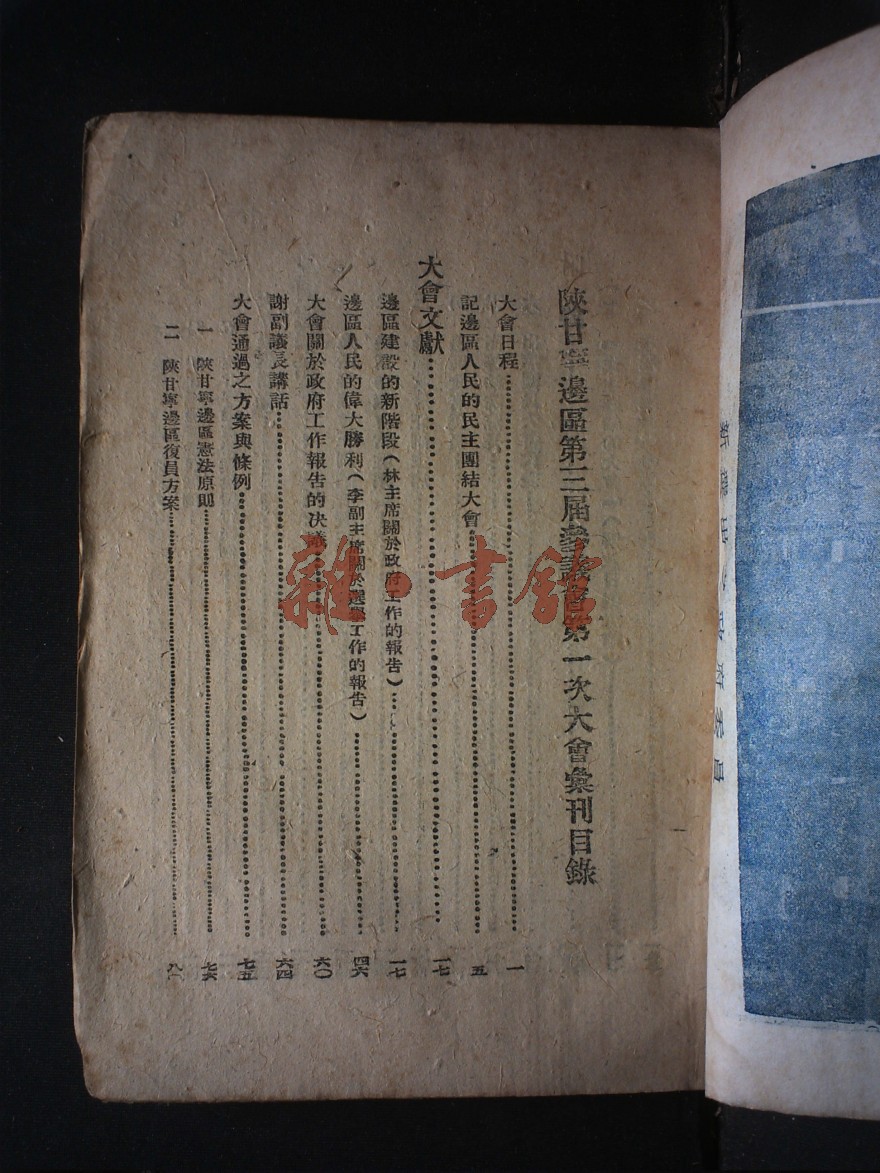 陝甘寧邊區第三屆參議會第一次大會彙刊目錄
大會日程 一
記邊區人民的民主團結大會 五
大會文獻 一七
邊區建設的新階段(林主席關於政府工作的報告) 一七
邊區人民的偉大勝利(李副主席關於選舉工作的報告) 四六
大會關於政府工作報告的決議 六〇
謝副議長講話 六四
大會通過之方案與條例 七五
一 陝甘寧邊區憲法原則 七六
二 陝甘寧邊區復員方案
雜·書館